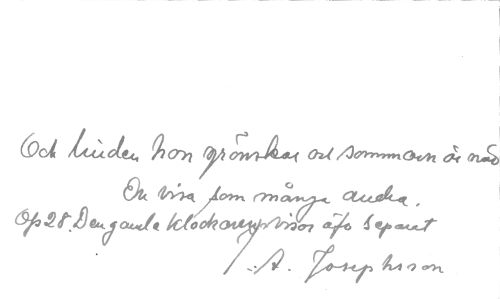 Och linden hon grönskar och sommaren är
En visa som många andra.
Op 28. Den gamle klockarens visor Separat
A. Josephsson